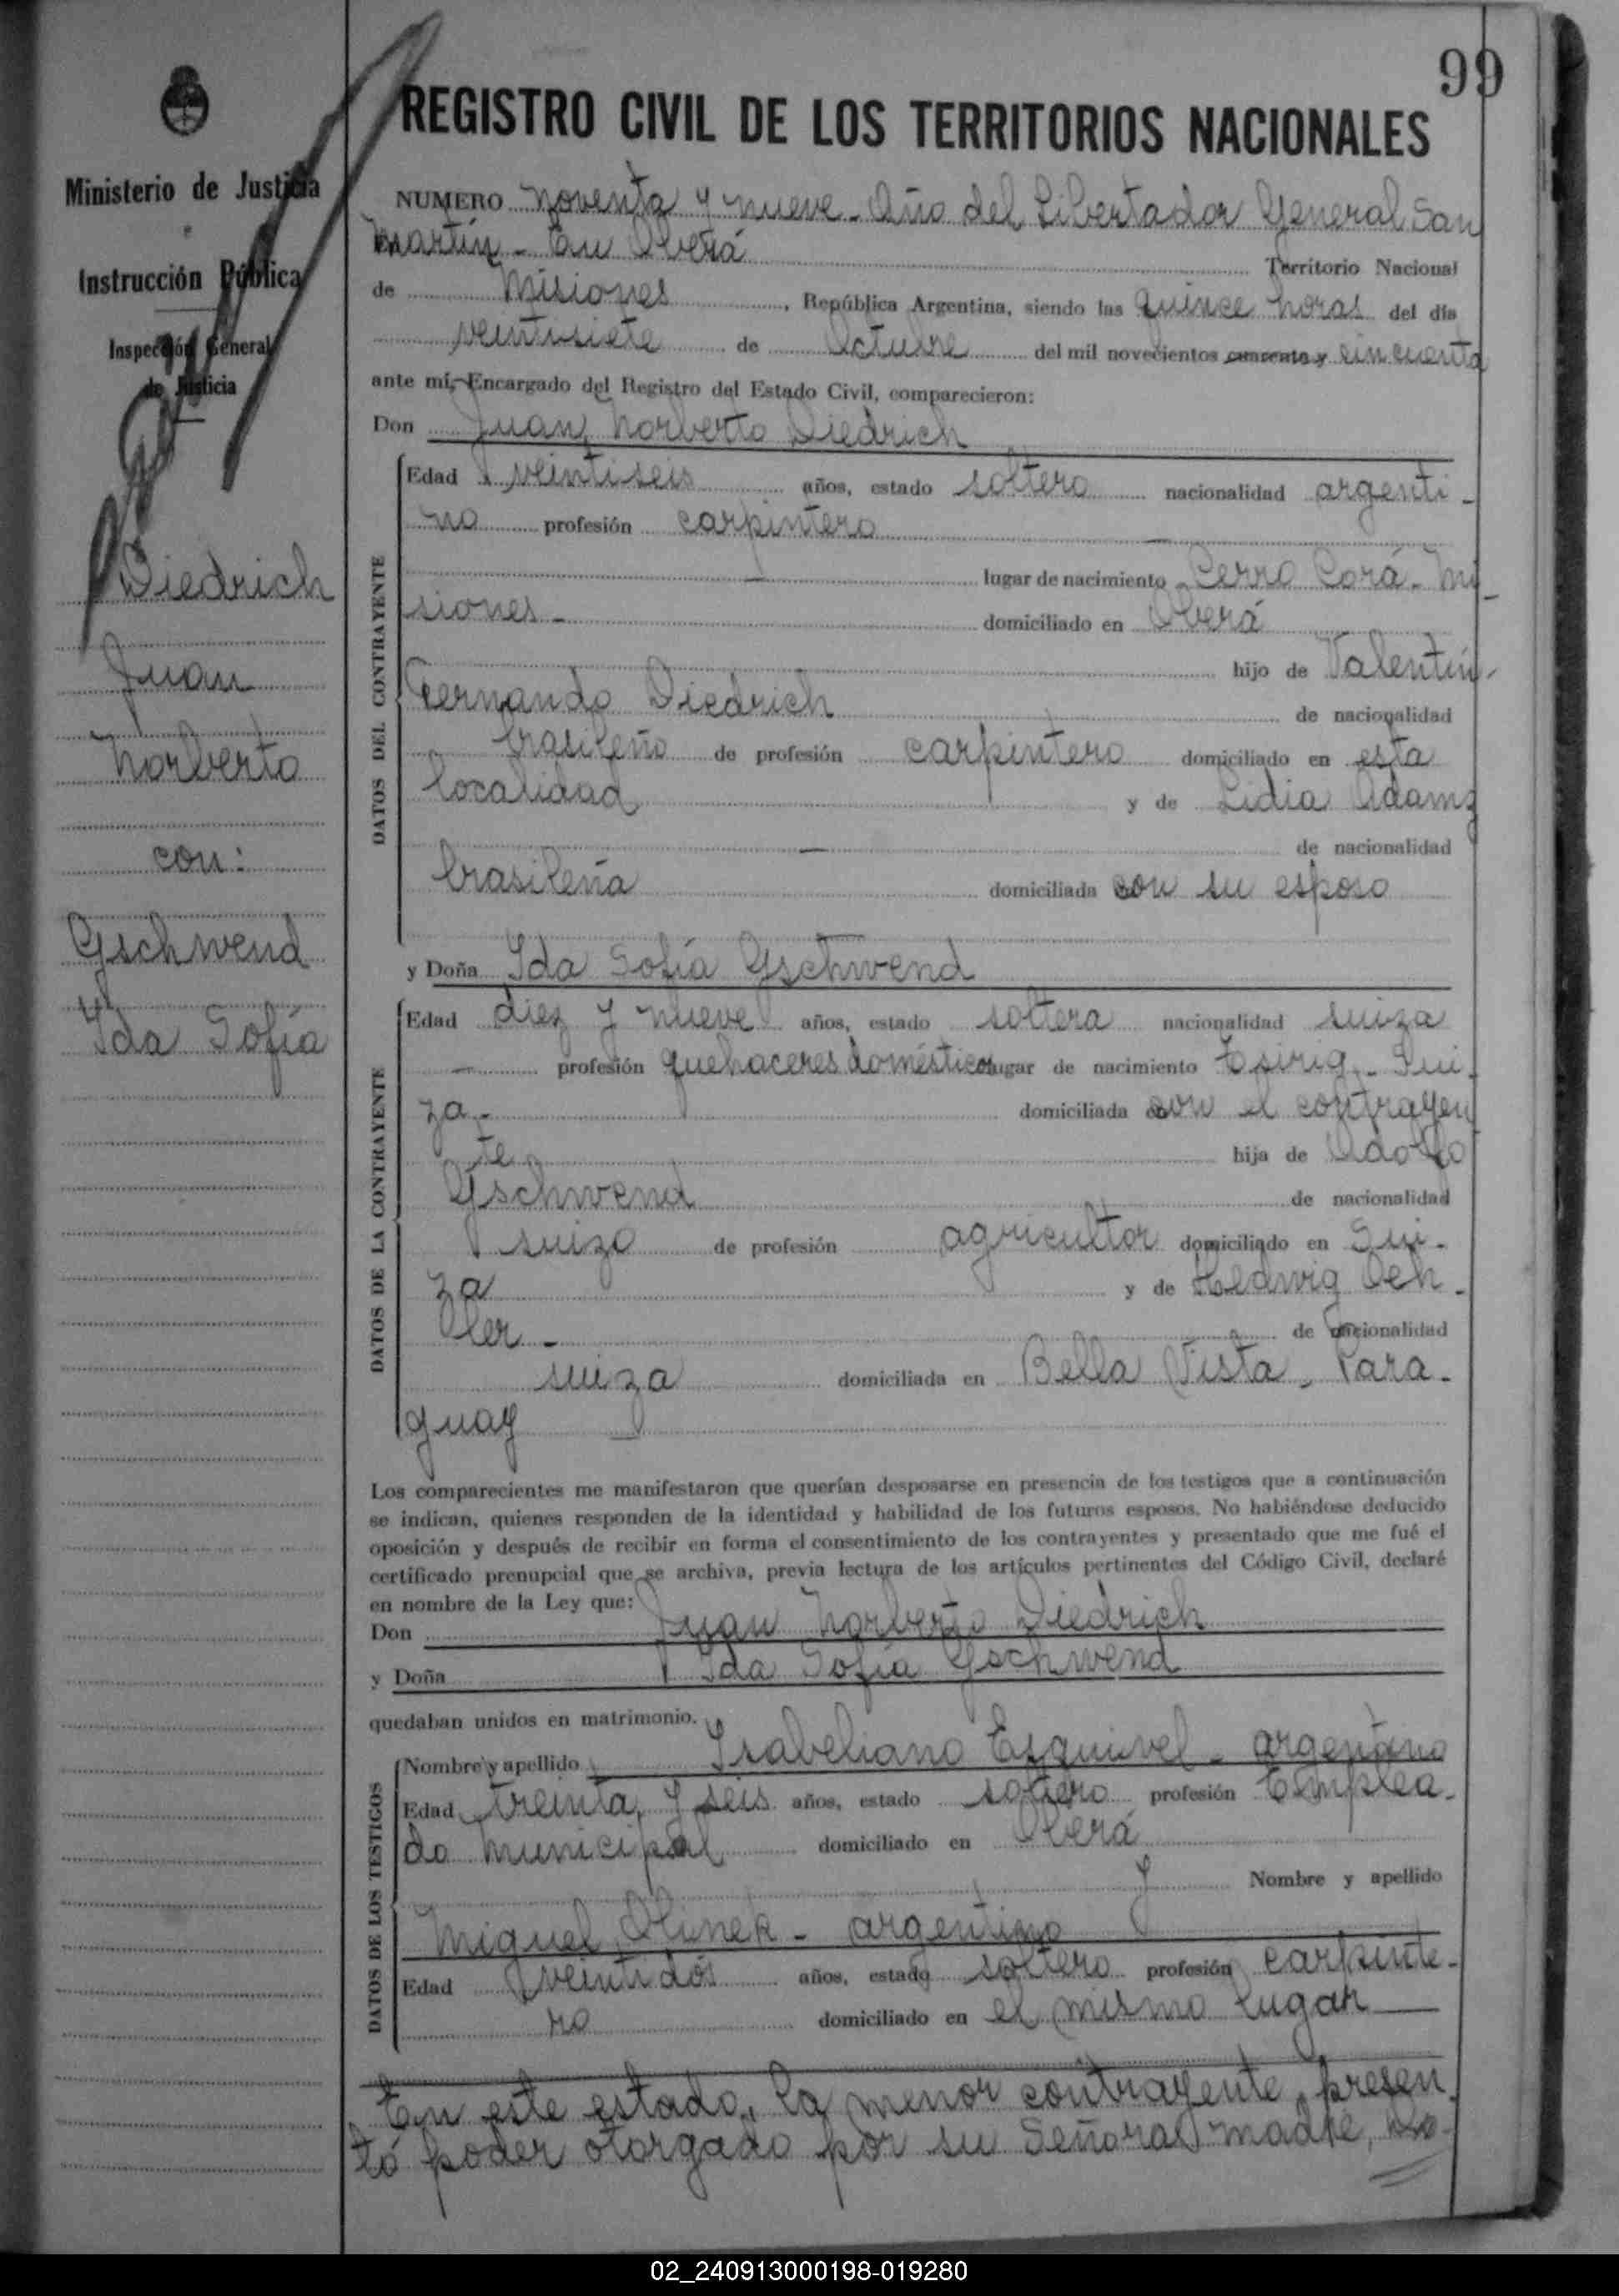 99
Ministerio de Justicia
Instrucción Pública
Inspección General
de Justicia
Diedrich
Juan
Norberto
con:
Gschwend
Ida Sofía
REGISTRO CIVIL DE LOS TERRITORIOS NACIONALES
NUMERO noventa y nueve - Año del Libertador General San
Martín - En Oberá Territorio Nacional
de Misiones, República Argentina, siendo las quince horas del día
veintisiete de Octubre del mil novecientos cuarenta y cincuenta
ante mí, Encargado del Registro del Estado Civil, comparecieron:
Don Juan Norberto Diedrich
DATOS DEL CONTRAYENTE
Edad veintiseis años, estado soltero nacionalidad argenti-
no profesión carpintero
lugar de nacimiento Cerro Corá - Mi-
siones - domiciliado en Oberá
hijo de Valentín
Fernando Diedrich de nacionalidad
brasileño de profesión carpintero domiciliado en esta
localidad y de Lidia Adams
de nacionalidad
brasileña domiciliada con su esposo
y Doña Ida Sofía Gschwend
DATOS DE LA CONTRAYENTE
Edad diez y nueve años, estado soltera nacionalidad suiza
profesión quehaceres domésticos lugar de nacimiento Tsirig - Sui-
za - domiciliada con el contrayen
te hija de Adolfo
Gschwend de nacionalidad
suizo de profesión agricultor domiciliado en Sui-
za y de Hedwig Oeh-
ler - de nacionalidad
suiza domiciliada en Bella Vista, Para-
guay
Los comparecientes me manifestaron que querían desposarse en presencia de los testigos que a continuación
se indican, quienes responden de la identidad y habilidad de los futuros esposos. No habiéndose deducido
oposición y después de recibir en forma el consentimiento de los contrayentes y presentado que me fué el
certificado prenupcial que se archiva, previa lectura de los artículos pertinentes del Código Civil, declaré
en nombre de la Ley que:
Don Juan Norberto Diedrich
y Doña Ida Sofía Gschwend
quedaban unidos en matrimonio.
DATOS DE LOS TESTIGOS
Nombre y apellido Isabeliano Esquivel - argentino
Edad treinta y seis años, estado soltero profesión Emplea-
do Municipal domiciliado en Oberá
y Nombre y apellido
Miguel Olinek - argentino
Edad veintidós años, estado soltero profesión carpinte-
ro domiciliado en el mismo lugar
En este estado, la menor contrayente, presen
tó poder otorgado por su Señora madre,
02_240913000198-019280